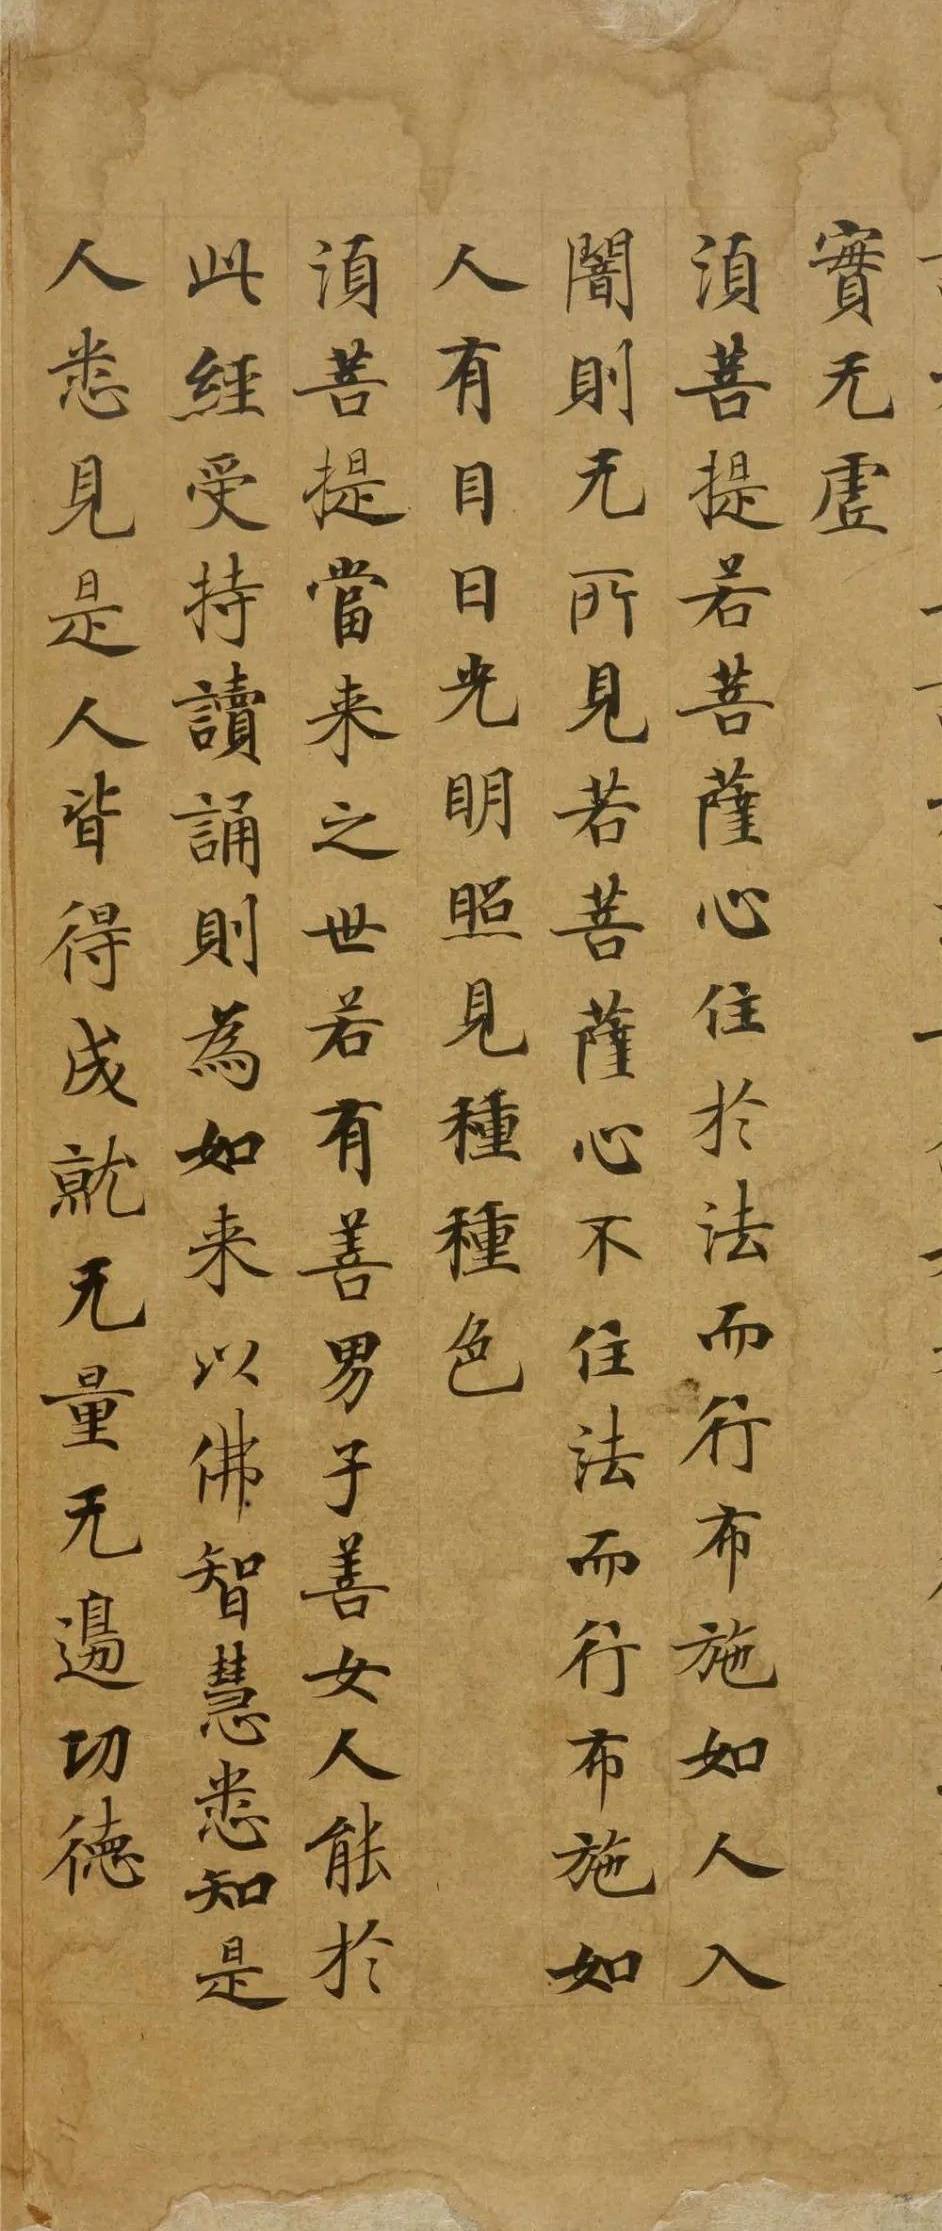 實无虛
須菩提若菩薩心住於法而行布施如人入
闇則无所見若菩薩心不住法而行布施如
人有目日光明照見種種色
須菩提當来之世若有善男子善女人能於
此經受持讀誦則為如来以佛智慧悉知是
人悉見是人皆得成就无量无邊功德